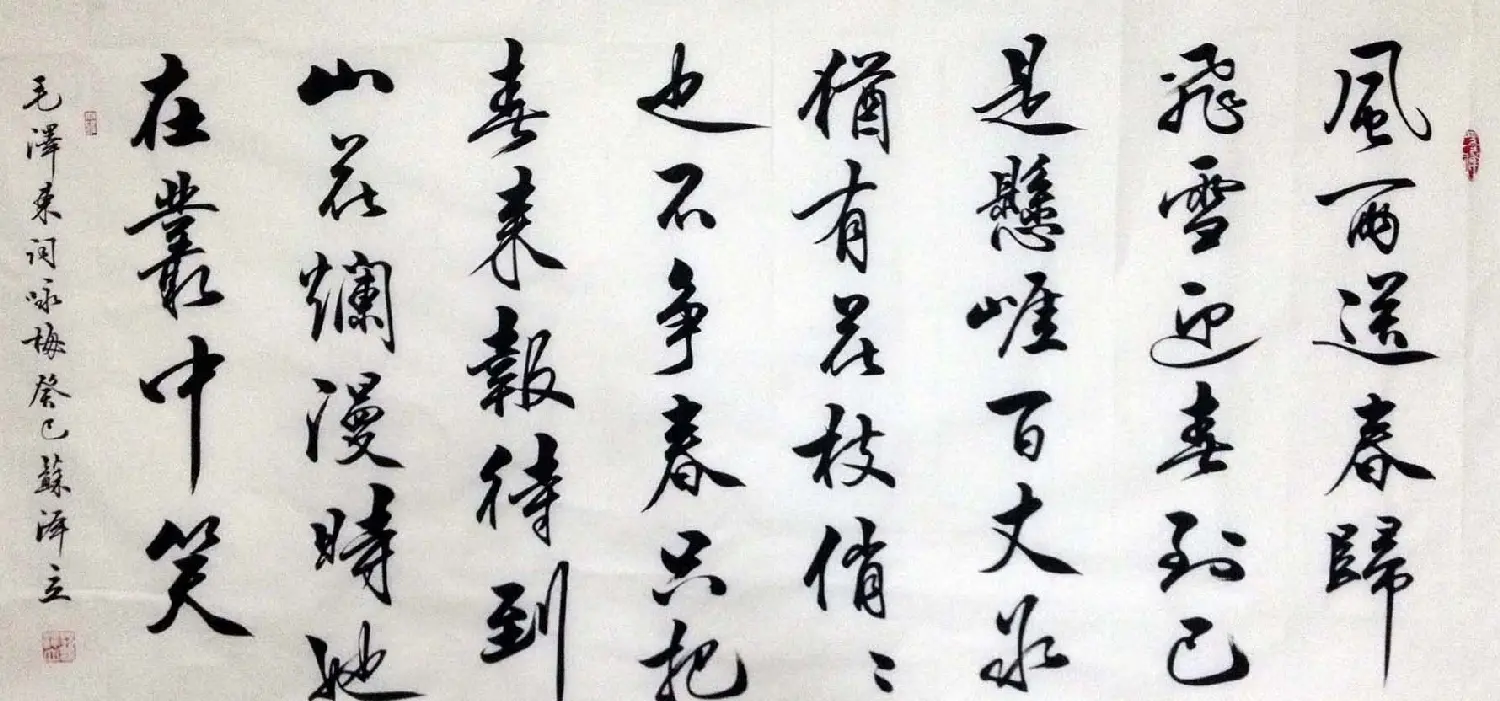 風雨送春歸
飛雪迎春到已
是懸崖百丈冰
猶有花枝俏〻
也不争春只把
春来報待到
山花爛漫時她
在叢中笑
毛澤东词咏梅癸巳蘇泽立